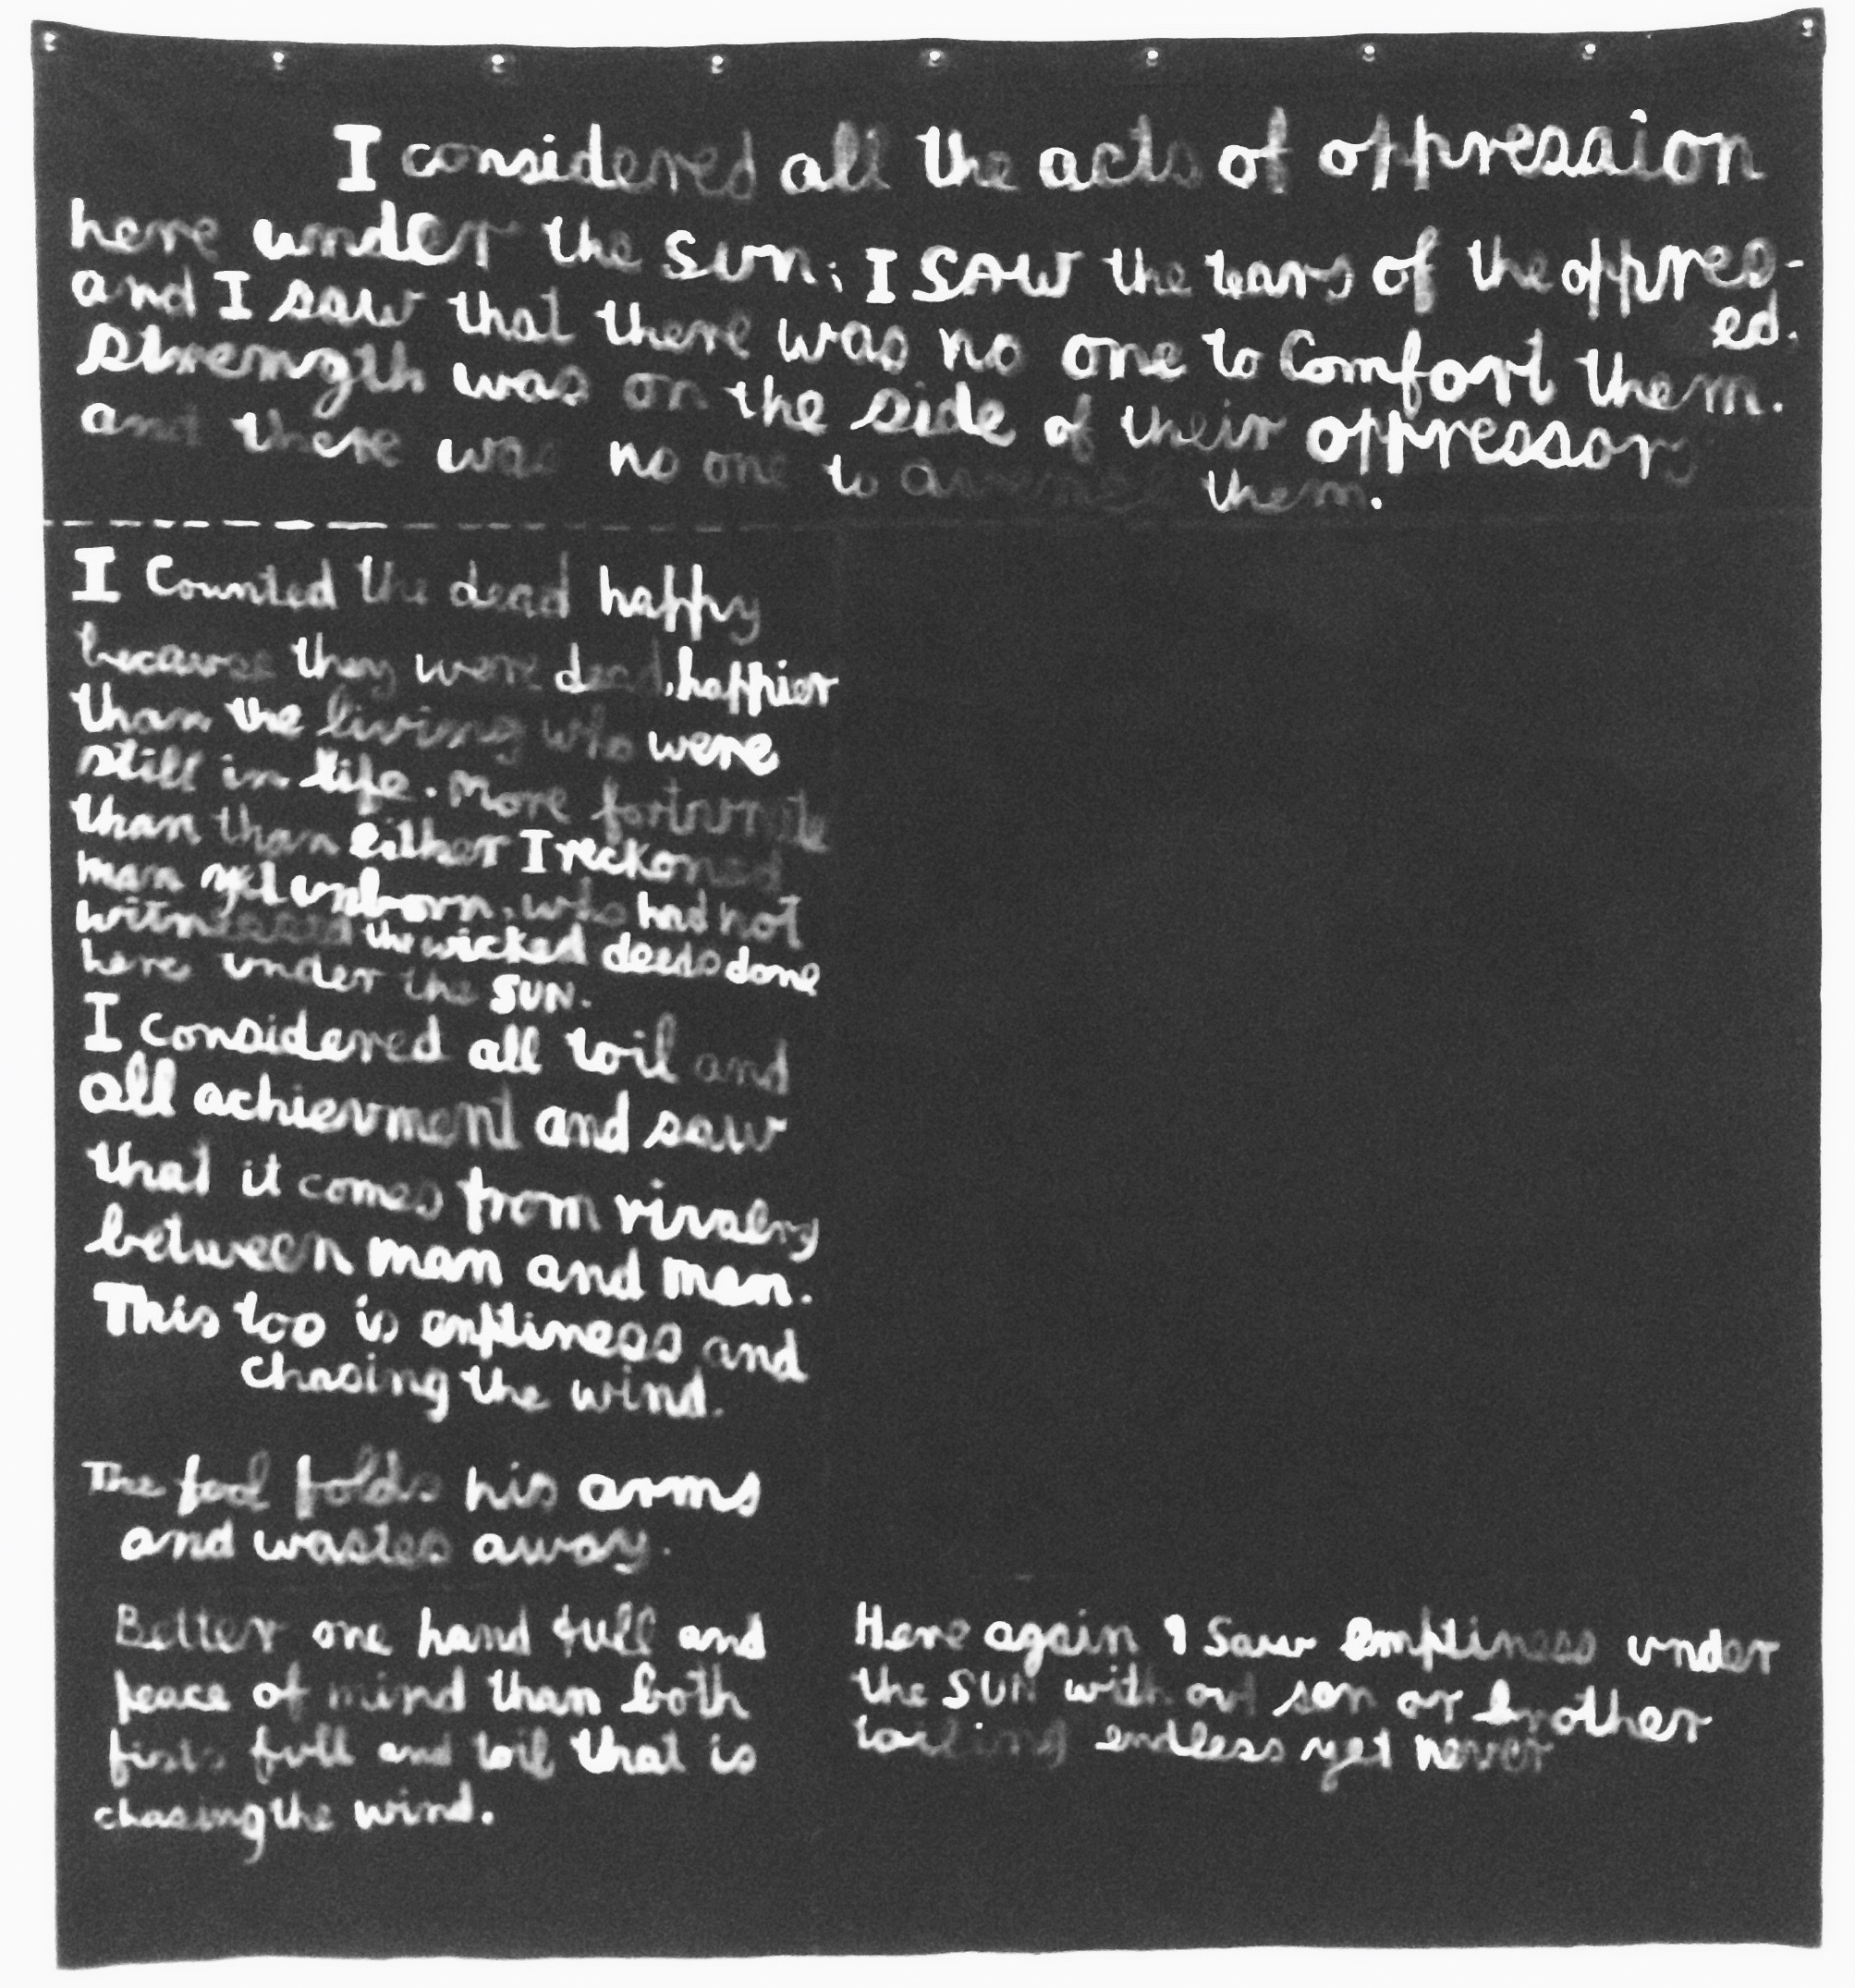 I considered all the acts of oppression
here under the SUN; I SAW the tears of the oppres-
ed.
and I saw that there was no one to Comfort them.
strength was on the side of their oppressors
and there was no one to them.
I Counted the dead happy
because they were dead, happier
than the living who were
still in life. More fortunate
than than either I reckoned
man yet unborn, who had not
witnessed the wicked deeds done
here under the SUN.
I considered all toil and
all achievment and saw
that it comes from rivalry
between man and man.
This too is emptiness and
chasing the wind.
The fool folds his arms
and wastes away.
Better one hand full and
peace of mind than both
fists full and toil that is
chasing the wind.
Here again I Saw emptiness under
the SUN with out son or brother
toiling endless yet never